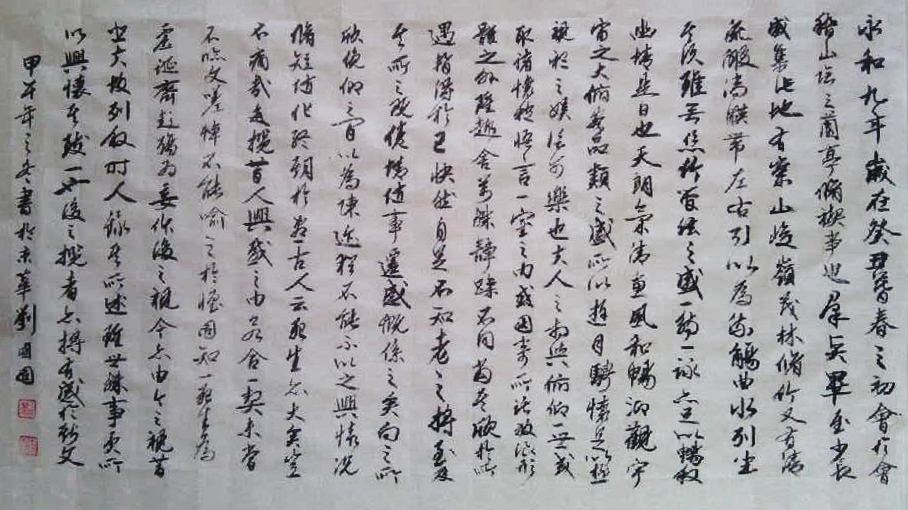 永和九年歲在癸丑暮春之初會於會
稽山陰之蘭亭脩禊事也群賢畢至少長
咸集此地有崇山峻嶺茂林脩竹又有清
流激湍暎帶左右引以為流觴曲水列坐
其次雖無絲竹管弦之盛一觴一詠亦足以暢敘
幽情是日也天朗氣清惠風和暢仰觀宇
宙之大俯察品類之盛所以遊目騁懷足以極
視聽之娛信可樂也夫人之相與俯仰一世或
取諸懷抱悟言一室之內或因寄所託放浪形
骸之外雖趣舍萬殊靜躁不同當其欣於所
遇暫得於己快然自足不知老之將至及
其所之既倦情隨事遷感慨係之矣向之所
欣俛仰之間以為陳迹猶不能不以之興懷況
脩短隨化終期於盡古人云死生亦大矣豈
不痛哉每攬昔人興感之由若合一契未嘗
不臨文嗟悼不能喻之於懷固知一死生為
虛誕齊彭殤為妄作後之視今亦由今之視昔
悲夫故列敘時人錄其所述雖世殊事異所
以興懷其致一也後之攬者亦將有感於斯文
甲午年之冬書於京華劉國